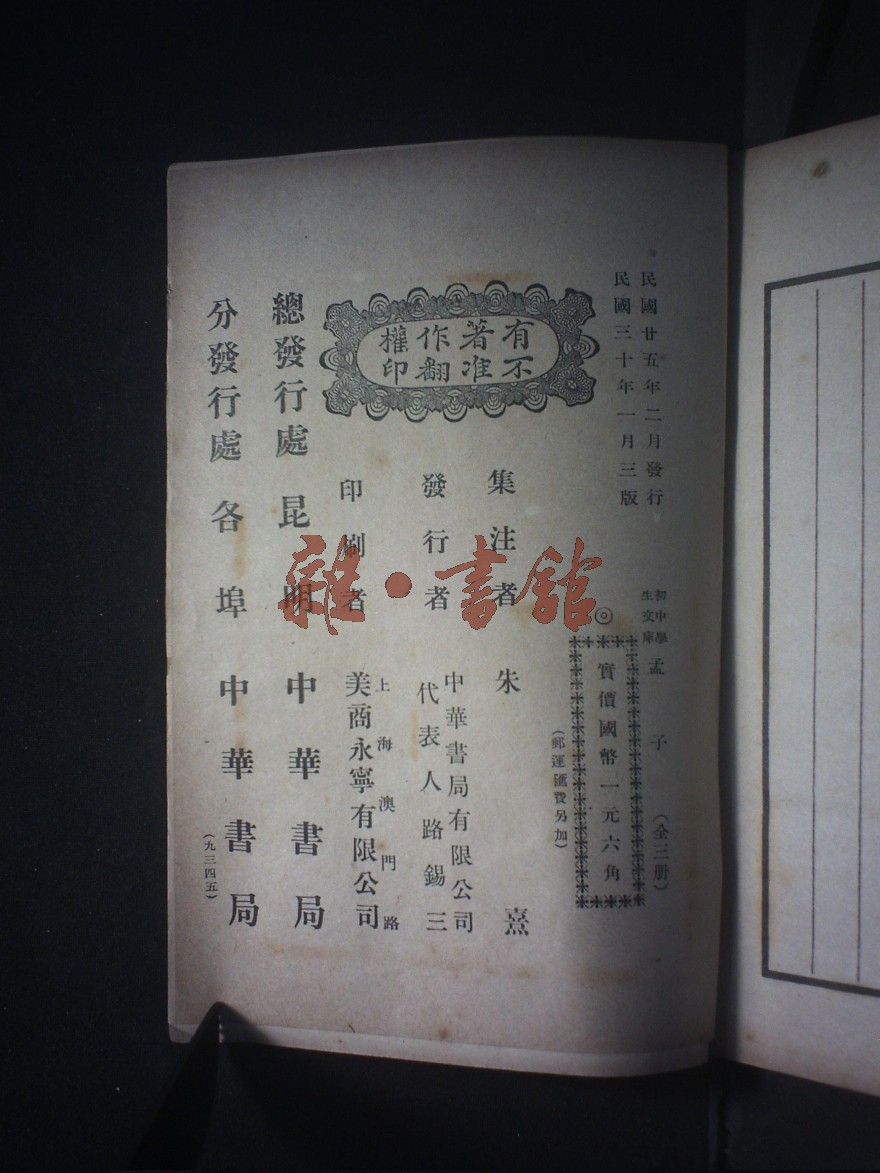 民國廿五年二月發行
民國三十年一月三版
初中學
生文庫
孟子
(全三册)
◎
實價國幣一元六角
(郵運匯費另加)
有著作權
不准翻印
集注者 朱熹
發行者
中華書局有限公司
代表人路錫三
印刷者
上海澳門路
美商永寧有限公司
總發行處 昆明 中華書局
分發行處 各埠 中華書局
(九三四五)
雜·書館